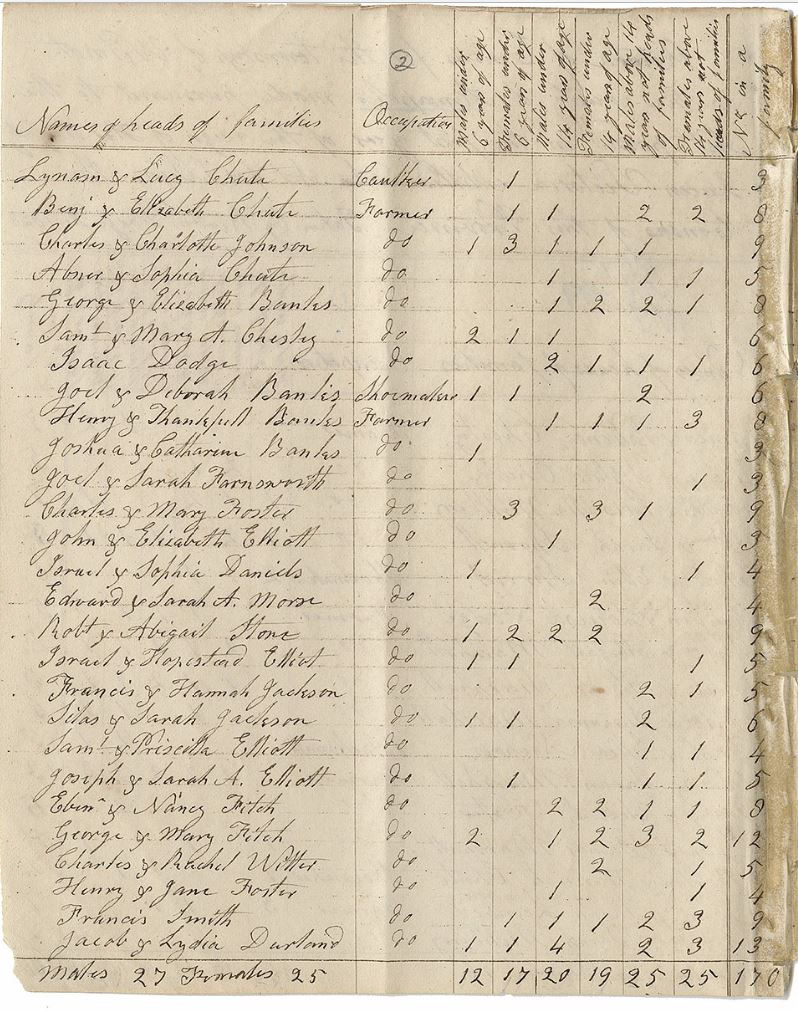 2
Names of heads of families Occupation Males under 6 years of age Females under 6 years of age Males under 14 years of age Females under 14 years of age Males above 14 years not heads of families Females above 14 years not heads of families No in a family
Lynam & Lucy Chute Caulker 1 3
Benj & Elizabeth Chute Farmer 1 1 2 2 8
Charles & Charlotte Johnson do 1 3 1 1 1 9
Abner & Sophia Chute do 1 1 1 5
George & Elizabeth Banks do 1 2 2 1 8
Saml & Mary A. Chesley do 2 1 1 6
Isaac Dodge do 2 1 1 1 6
Joel & Deborah Banks Shoemaker 1 1 2 6
Henry & Thankfull Banks Farmer 1 1 1 3 8
Joshua & Catharine Banks do 1 3
Joel & Sarah Farnsworth do 1 3
Charles & Mary Foster do 3 3 1 9
John & Elizabeth Elliott do 1 3
Israel & Sophia Daniels do 1 1 4
Edward & Sarah A. Morse do 2 4
Robt & Abigail Stone do 1 2 2 2 9
Israel & Hopestead Elliot do 1 1 1 5
Francis & Hannah Jackson do 2 1 5
Silas & Sarah Jackson do 1 1 2 6
Saml & Priscilla Elliott do 1 1 4
Joseph & Sarah A. Elliott do 1 1 1 5
Ebenr & Nancy Fitch do 2 2 1 1 8
George & Mary Fitch do 2 1 2 3 2 12
Charles & Rachel Witter do 2 1 5
Henry & Jane Foster do 1 1 4
Francis Smith do 1 1 1 2 3 9
Jacob & Lydia Durland do 1 1 4 2 3 13
Males 27 Females 25 12 17 20 19 25 25 170